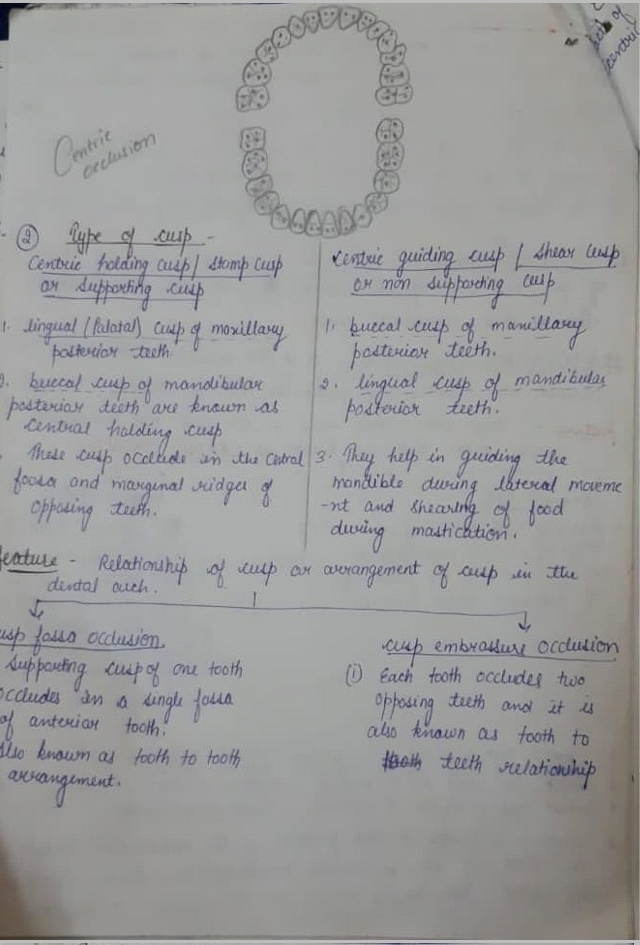 sel of
centric
Centric
occlusion
② Type of cusp -
Centric holding cusp / Stamp cusp
or supporting cusp
1. lingual (Palatal) cusp of maxillary
posterior teeth
2. buccal cusp of mandibular
posterior teeth are known as
central holding cusp
These cusp occlude in the central
fossa and marginal ridges of
opposing teeth.
Centric guiding cusp / Shear cusp
or non supporting cusp
1. buccal cusp of maxillary
posterior teeth.
2. lingual cusp of mandibular
posterior teeth.
3. They help in guiding the
mandible during lateral moveme
-nt and shearing of food
during mastication.
feature - Relationship of cusp or arrangement of cusp in the
dental arch.
usp fossa occlusion
Supporting cusp of one tooth
occludes in a single fossa
of anterior tooth.
Also known as tooth to tooth
arrangement.
cusp embrassure occlusion
(i) Each tooth occludes two
opposing teeth and it is
also known as tooth to
teeth relationship